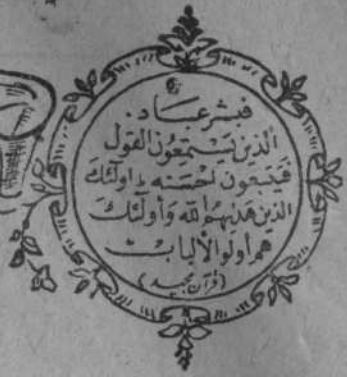 فبشر عباد.
الذين يستمعون القول
فيتبعون احسنه ط اولئك
الذين هديهم الله واولئك
هم أولو الألباب
(قرآن مجيد)